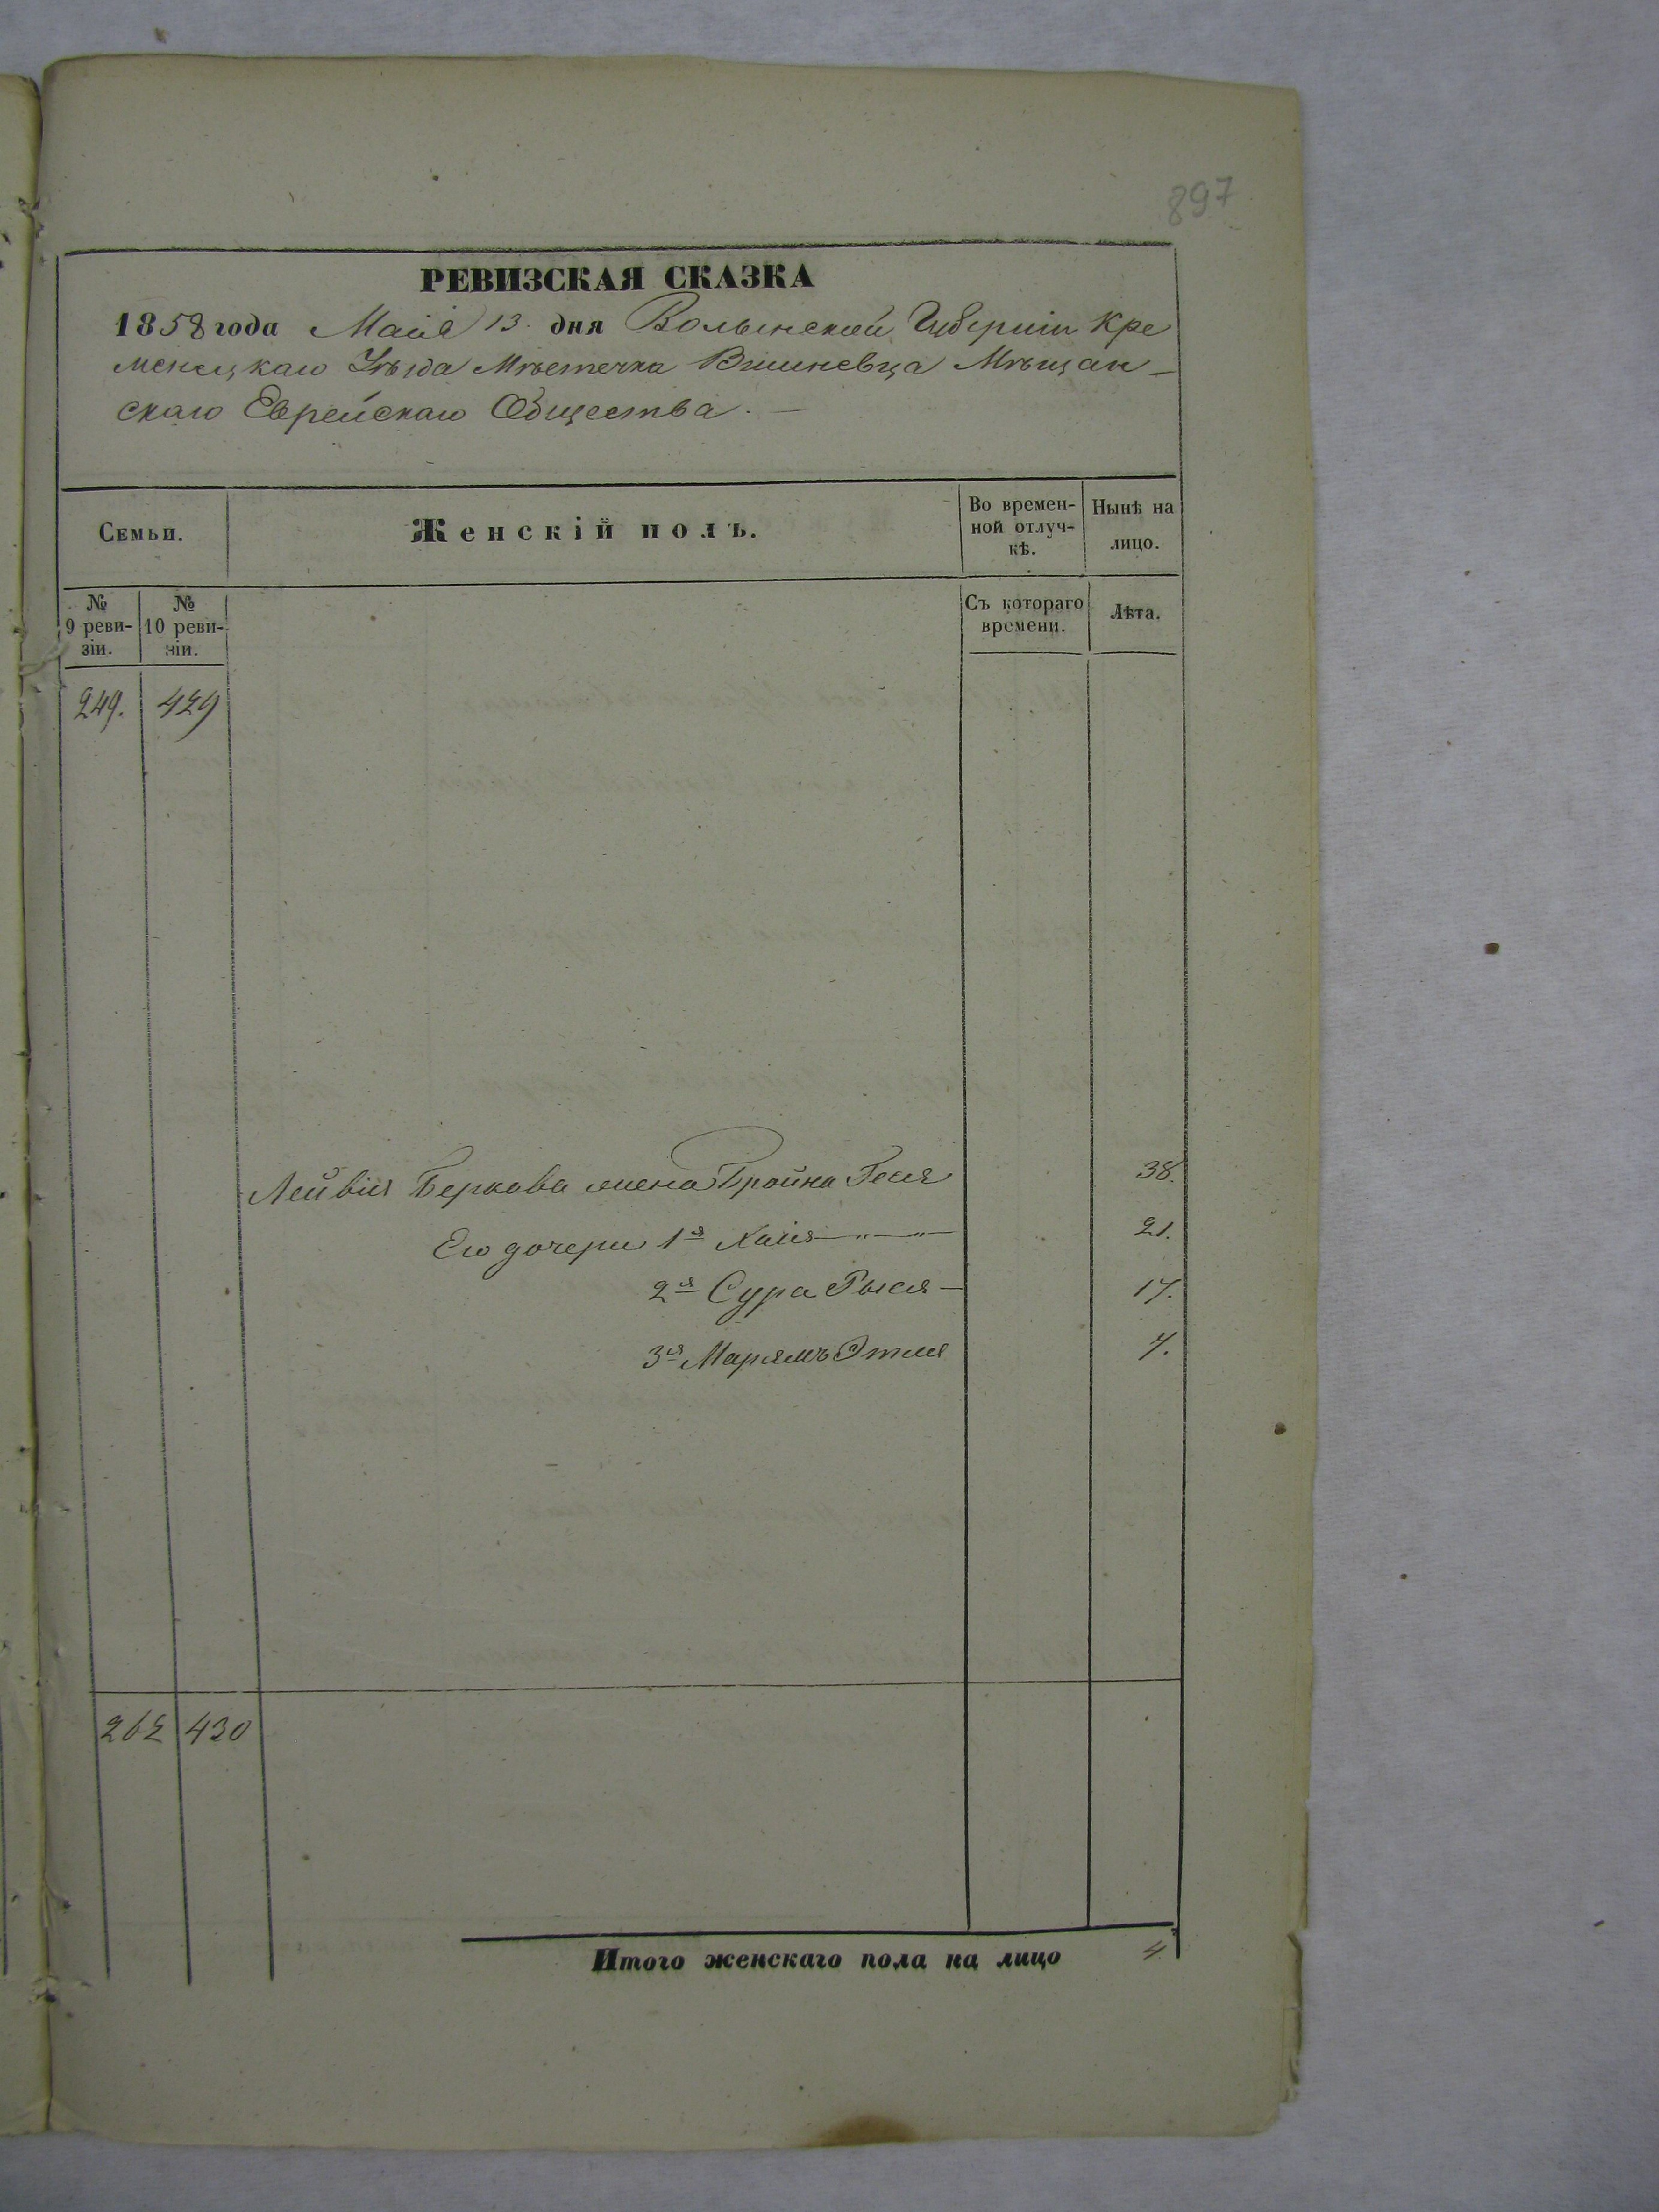 897
РЕВИЗСКАЯ СКАЗКА
1858 года Маія 13. дня Волынской Губерніи Кре
менецкаго Уѣзда Мѣстечка Вишневца Мѣщан-
скаго Еврейскаго Общества. —
Семьи.
Женскій полъ.
Во времен-
ной отлуч-
кѣ.
Нынѣ на
лицо.
№
9 реви-
зіи.
№
10 реви-
зіи.
Съ котораго
времени.
Лѣта.
249. 429
Лейбія Беркова жена Бройна Геня 38.
Его дочери 1я Хаія — " — " — 21.
2я Сура Рыся — 17.
3я Марямъ Этля 7.
262 430
Итого женскаго пола на лицо 4